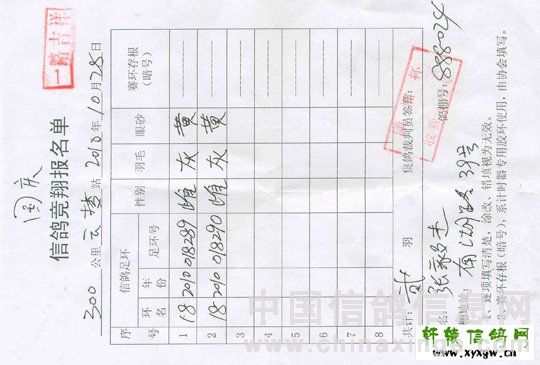 国庆
信鸽竞翔报名单
300 公里 云梦 站 2010 年 10 月 28 日
一路吉祥
序号 信鸽足环 性别 羽毛 眼砂 赛环存根(暗号)
环名 年份 足环号
1 18 2010 018289 雌 灰 黄
2 18 2010 018290 雌 灰 黄
3
4
5
6
7
8
共计: 贰 羽 集鸽裁判员签章:
名: 张毅杰 鸽棚号: 888024
棚地址: 南湖路39号
1、逐项填写清楚,涂改、错填视为无效。
2、赛环存根(暗号),系计时器专用胶环使用,由协会填写。
中国信鸽信息网
www.chinaxinge.com
轩辕信鸽网
www.xyxgw.cn